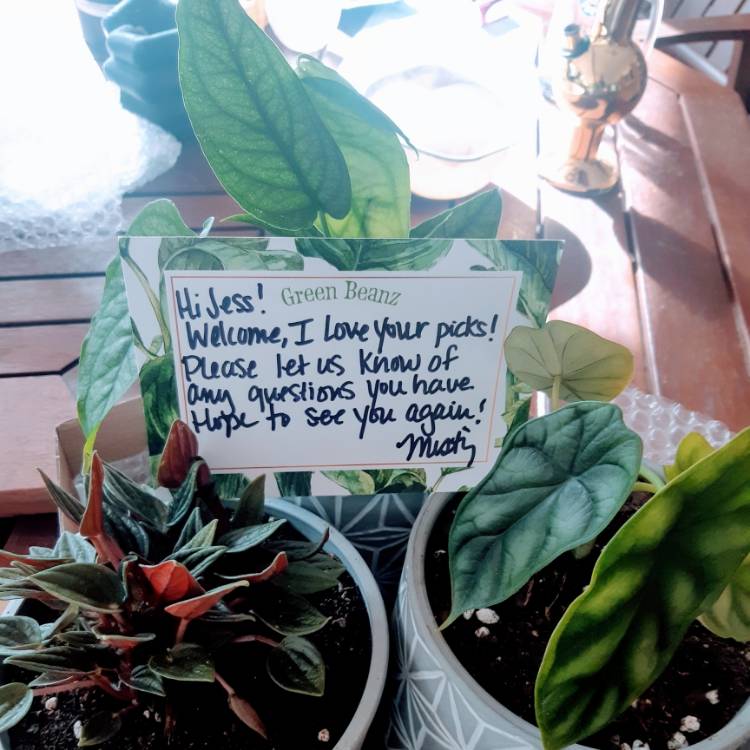 Green Beanz
Hi Jess!
Welcome, I Love your picks!
Please let us know of
any questions you have
Hope to see you again!
Misty